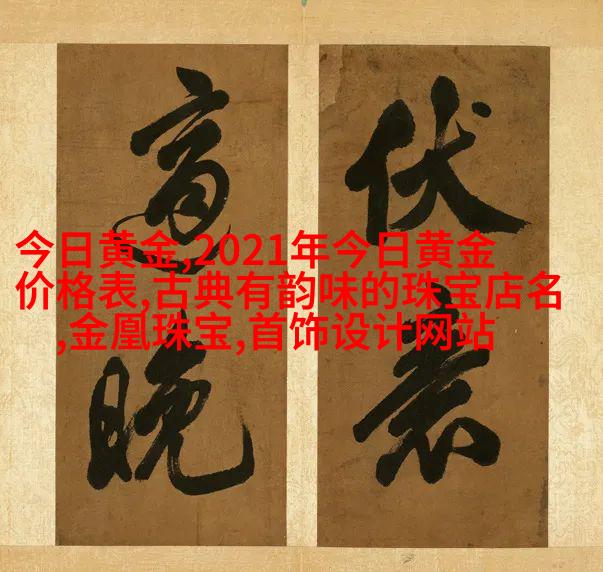 今日黄金,2021年今日黄金
价格表,古典有韵味的珠宝店名
,金凰珠宝,首饰设计网站
伏
晚